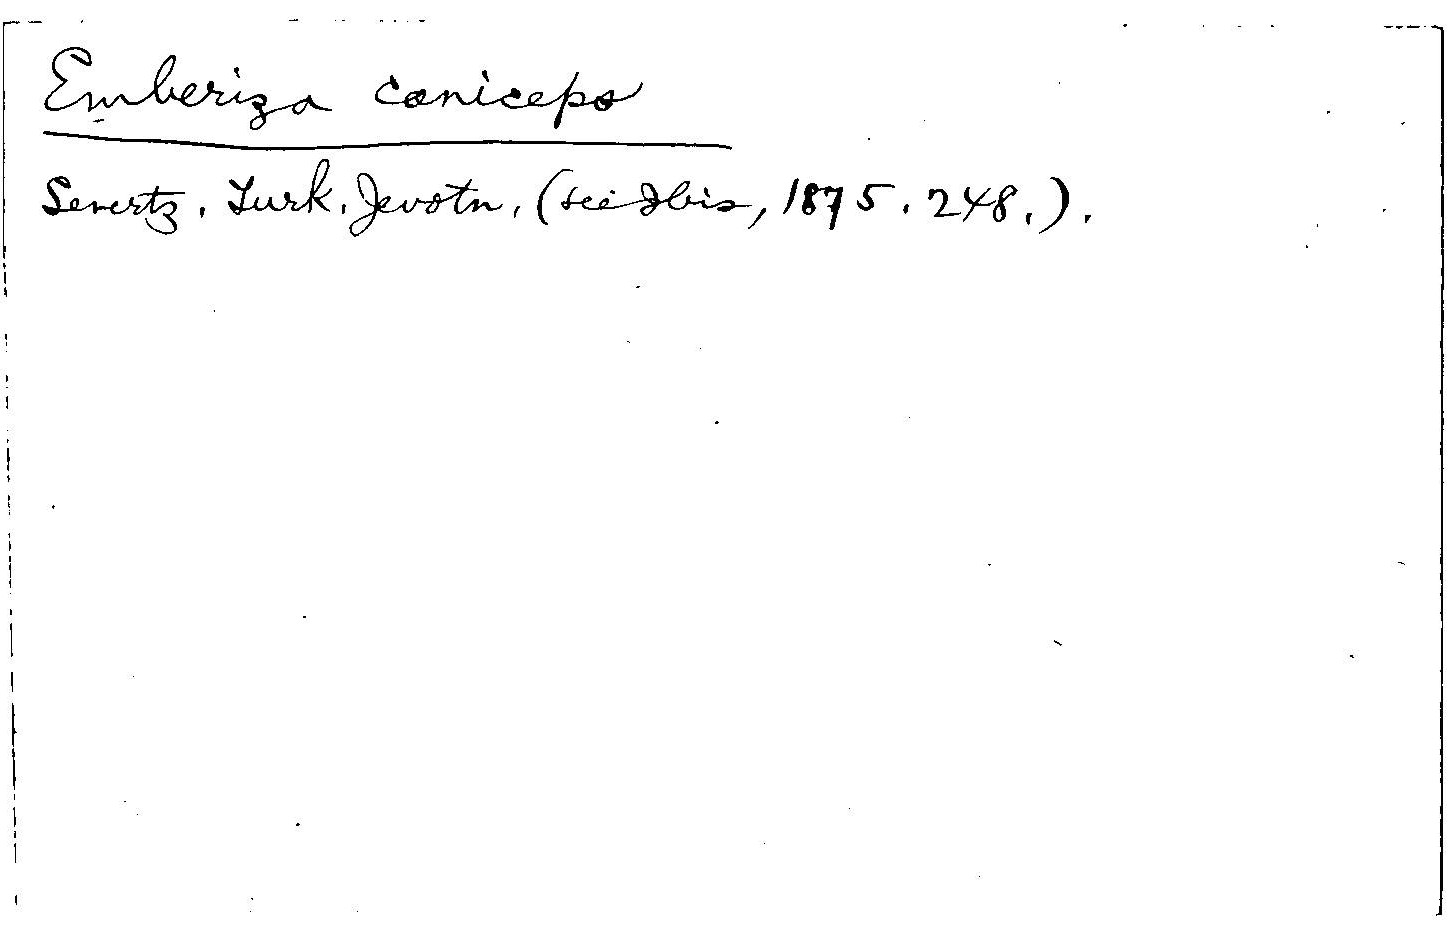 Emberiza caniceps
Severtz. Turk. Jevotn. (see Ibis, 1875. 248.).